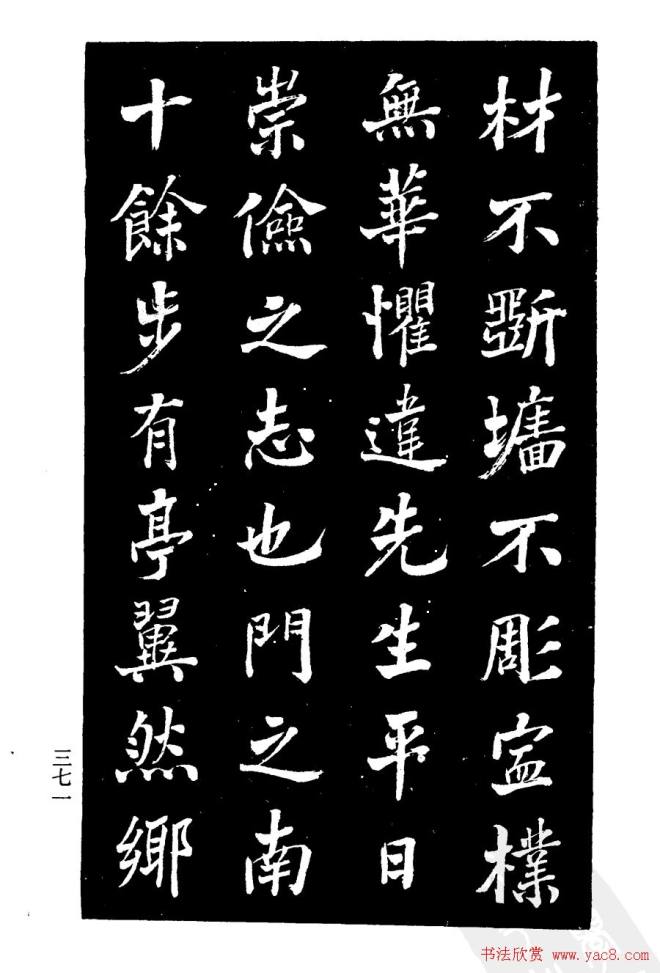 材不斵墻不彫寍樸
無華懼違先生平日
崇儉之志也門之南
十餘步有亭翼然鄉
三七一
书法欣赏 www.yac8.com